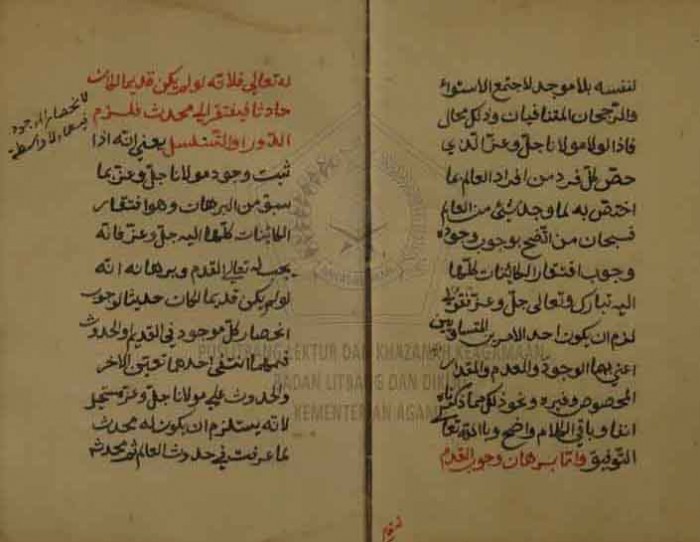 لنفسه بلا موجد لاجتمع الاستواء
والترجحان المتنافيان وذلك محال
فاذا لولا مولانا جل وعز الذي
خص كل فرد من افراد العالم بما
اختص به لما وجد شئ من العالم
فسبحان من اتضح بوجوب وجوده
وجوب افتقار الكائنات كلها
اليه تبارك وتعالى جل وعز
لزم ان يكون احد الامرين المتساويين
اعني بهما الوجود والعدم والمقدار
المخصوص وغيره ونحو ذلك مما ذكرناه
انفا وباقي الكلام واضح وبالله تعالى
التوفيق واما برهان وجوب القدم
له تعالى فلانه لو لم يكن قديما لكان
حادثا فيفتقر الى محدث فلزم
الدور او التسلسل يعني انه اذا
ثبت وجود مولانا جل وعز بما
سبق من البرهان وهو افتقار
الكائنات كلها اليه جل وعز فانه
يجب له تعالى القدم وبرهانه انه
لو لم يكن قديما لكان حادثا لوجوب
انحصار كل موجود في القديم والحدوث
فمهما انتفى احدهما تعين الاخر
والحدوث على مولانا جل وعز مستحيل
لانه يستلزم ان يكون له محدث
لما عرفت في حدوث العالم ثم محدثه
لانحصار الموجود
فيهما ولا واسطة
PUSLITBANG LEKTUR DAN KHAZANAH KEAGAMAAN
BADAN LITBANG DAN DIKLAT
KEMENTERIAN AGAMA